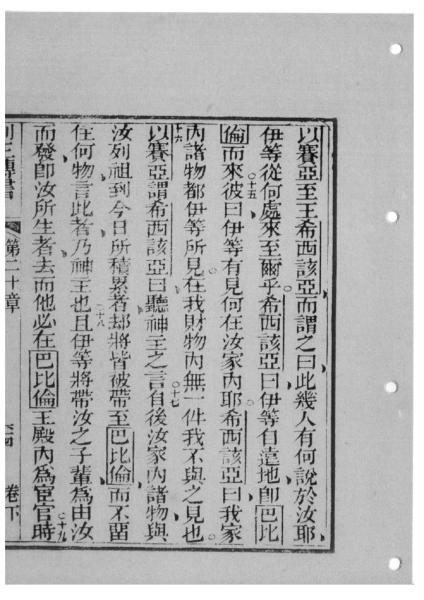 以賽亞至王希西該亞而謂之曰此幾人有何說於汝耶
伊等從何處來至爾乎希西該亞曰伊等自遠地卽巴比
倫而來○十五彼曰伊等有見何在汝家內耶希西該亞曰我家
內諸物都伊等所見在我財物內無一件我不與之見也
○十六以賽亞謂希西該亞曰聽神主之言○十七自後汝家內諸物與
汝列祖到今日所積累者却將皆被帶至巴比倫而不留
任何物言此者乃神主也○十八且伊等將帶汝之子輩爲由汝
而發卽汝所生者去而他必在巴比倫王殿內爲宦官○十九時
列王傳書 第二十章 卷下